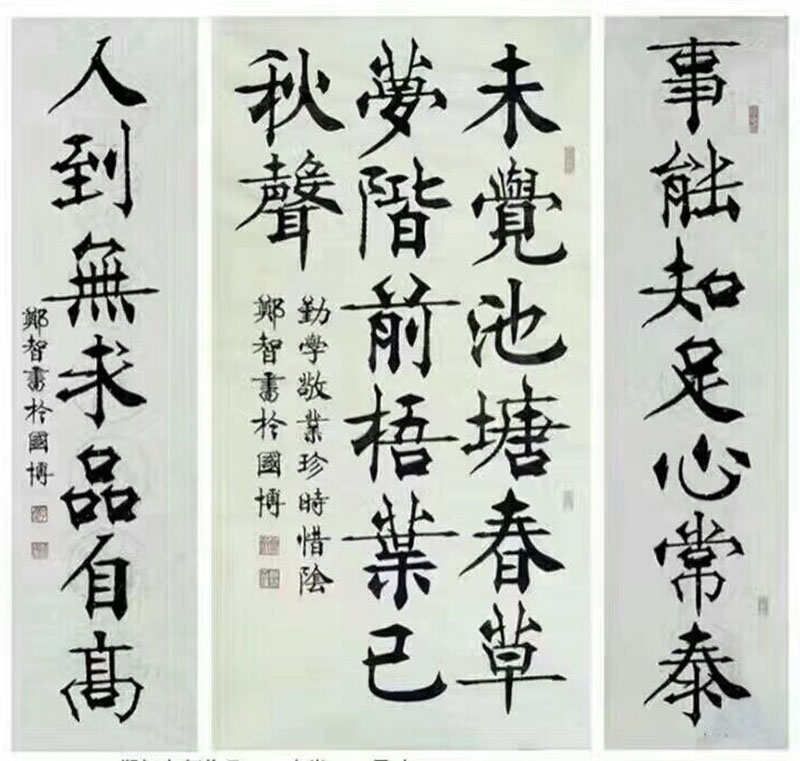 事能知足心常泰
未覺池塘春草
夢階前梧葉已
秋聲
勤學敬業珍時惜陰
鄭智書於國博
人到無求品自高
鄭智書於國博